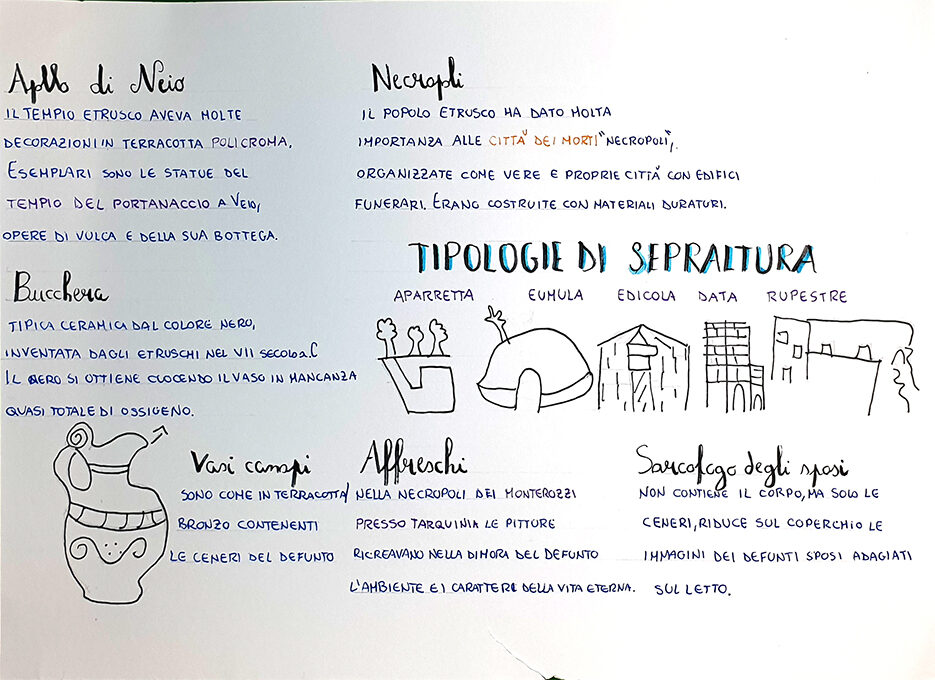 Apllo di Neio
IL TEMPIO ETRUSCO AVEVA MOLTE
DECORAZIONI IN TERRACOTTA POLICROMA,
ESEMPLARI SONO LE STATUE DEL
TEMPIO DEL PORTANACCIO A VEIO,
OPERE DI VULCA E DELLA SUA BOTTEGA.
Necropli
IL POPOLO ETRUSCO HA DATO MOLTA
IMPORTANZA ALLE CITTÀ DEI MORTI "NECROPOLI",
ORGANIZZATE COME VERE E PROPRIE CITTÀ CON EDIFICI
FUNERARI. ERANO COSTRUITE CON MATERIALI DURATURI.
TIPOLOGIE DI SEPRALTURA
APARRETTA EUMULA EDICOLA DATA RUPESTRE
Bucchera
TIPICA CERAMICA DAL COLORE NERO,
INVENTATA DAGLI ETRUSCHI NEL VII SECOLO a.C
IL NERO SI OTTIENE CUOCENDO IL VASO IN MANCANZA
QUASI TOTALE DI OSSIGENO.
Vasi canopi
SONO COME IN TERRACOTTA/
BRONZO CONTENENTI
LE CENERI DEL DEFUNTO
Affreschi
NELLA NECROPOLI DEI MONTEROZZI
PRESSO TARQUINIA LE PITTURE
RICREAVANO NELLA DIMORA DEL DEFUNTO
L'AMBIENTE E I CARATTERI DELLA VITA ETERNA.
Sarcofago degli sposi
NON CONTIENE IL CORPO, MA SOLO LE
CENERI, RIDUCE SUL COPERCHIO LE
IMMAGINI DEI DEFUNTI SPOSI ADAGIATI
SUL LETTO.